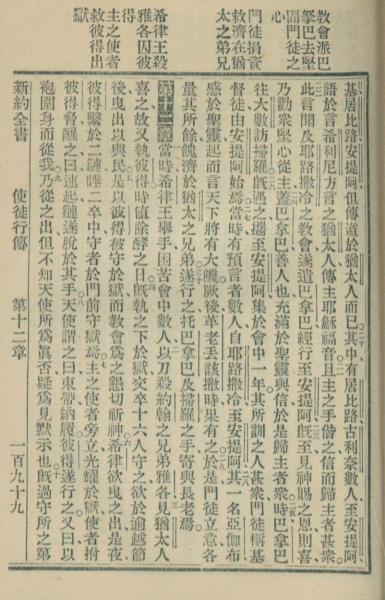 教會派巴
拏巴去堅
固門徒之
心
門徒捐資
救濟在猶
太之弟兄
希律王殺
雅各囚彼
得
主之使者
救彼得出
獄
基居比路安提阿但傳道於猶太人而已其中有居比路古利奈數人至安提阿
語於言希利尼方言之猶太人傳主耶穌福音且主之手偕之信而歸主者甚衆
此言聞及耶路撒冷之教會遂遣巴拿巴經行至安提阿既至見神賜之恩則喜
乃勸衆堅心從主蓋巴拿巴善人也充滿於聖靈與信於是歸主者衆時巴拿巴
往大數訪掃羅既遇之攜至安提阿集於會中一年其所訓之人甚衆門徒稱基
督徒由安提阿始焉當時有預言者數人自耶路撒冷至安提阿其一名亞伽布
感於聖靈起而言天下將有大饑厥後革老丟該撒時果有之於是門徒立意各
量其所餘餽濟於猶太之兄弟遂行之托巴拿巴及掃羅之手寄與長老焉
第十二章當時希律王舉手困苦會中數人以刀殺約翰之兄弟雅各見猶太人
喜之故又執彼得時值除酵之日既執之下於獄交卒十六人守之欲於逾越節
後曳出以與民是以彼得被守於獄而教會爲之懇切祈神希律欲曳之出是夜
彼得繫於二鏈睡二卒中守者於門前守獄焉主之使者旁立光耀於獄使者拊
彼得脅醒之曰速起鏈遂脫於其手天使謂之曰束帶納履彼得遂行之又曰以
袍圍身而從我乃從之出但不知天使所爲眞否疑爲見默示也既過守所之第
新約全書
使徒行傳
第十二章
一百九十九